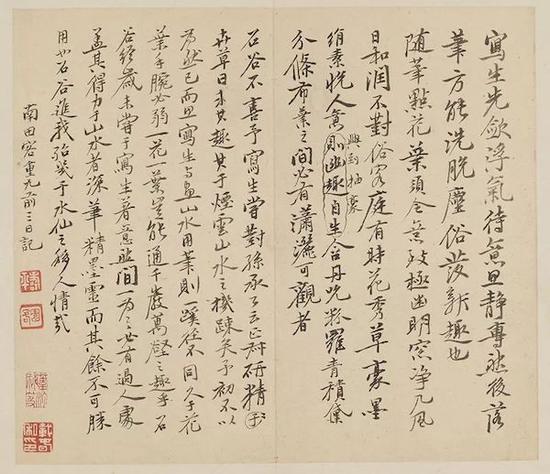 寫生先斂浮氣待意思靜專然後落
筆方能洗脫塵俗發新趣也
隨筆點花葉須令意致極幽明窗淨几風
日和潤不對俗客庭有時花秀草豪墨
絹素悅人意則幽趣自生含丹吮粉羅青積黛
興到抽豪
分條布葉之間必有瀟灑可觀者
石谷不喜予寫生嘗對孫承公云正叔研精於
卉草日求其趣其于煙雲山水之機疎矣予初不以
為然已而思寫生與畫山水用筆則一蹊徑不同久于花
葉手腕必弱一花一葉豈能通千巖萬壑之趣乎石
谷終歲未嘗于寫生著意然間一為之必有過人處
蓋其得力于山水者深筆精墨靈而其餘不可勝
用也石谷進我殆幾于水仙之移人情哉
南田客重九前三日記